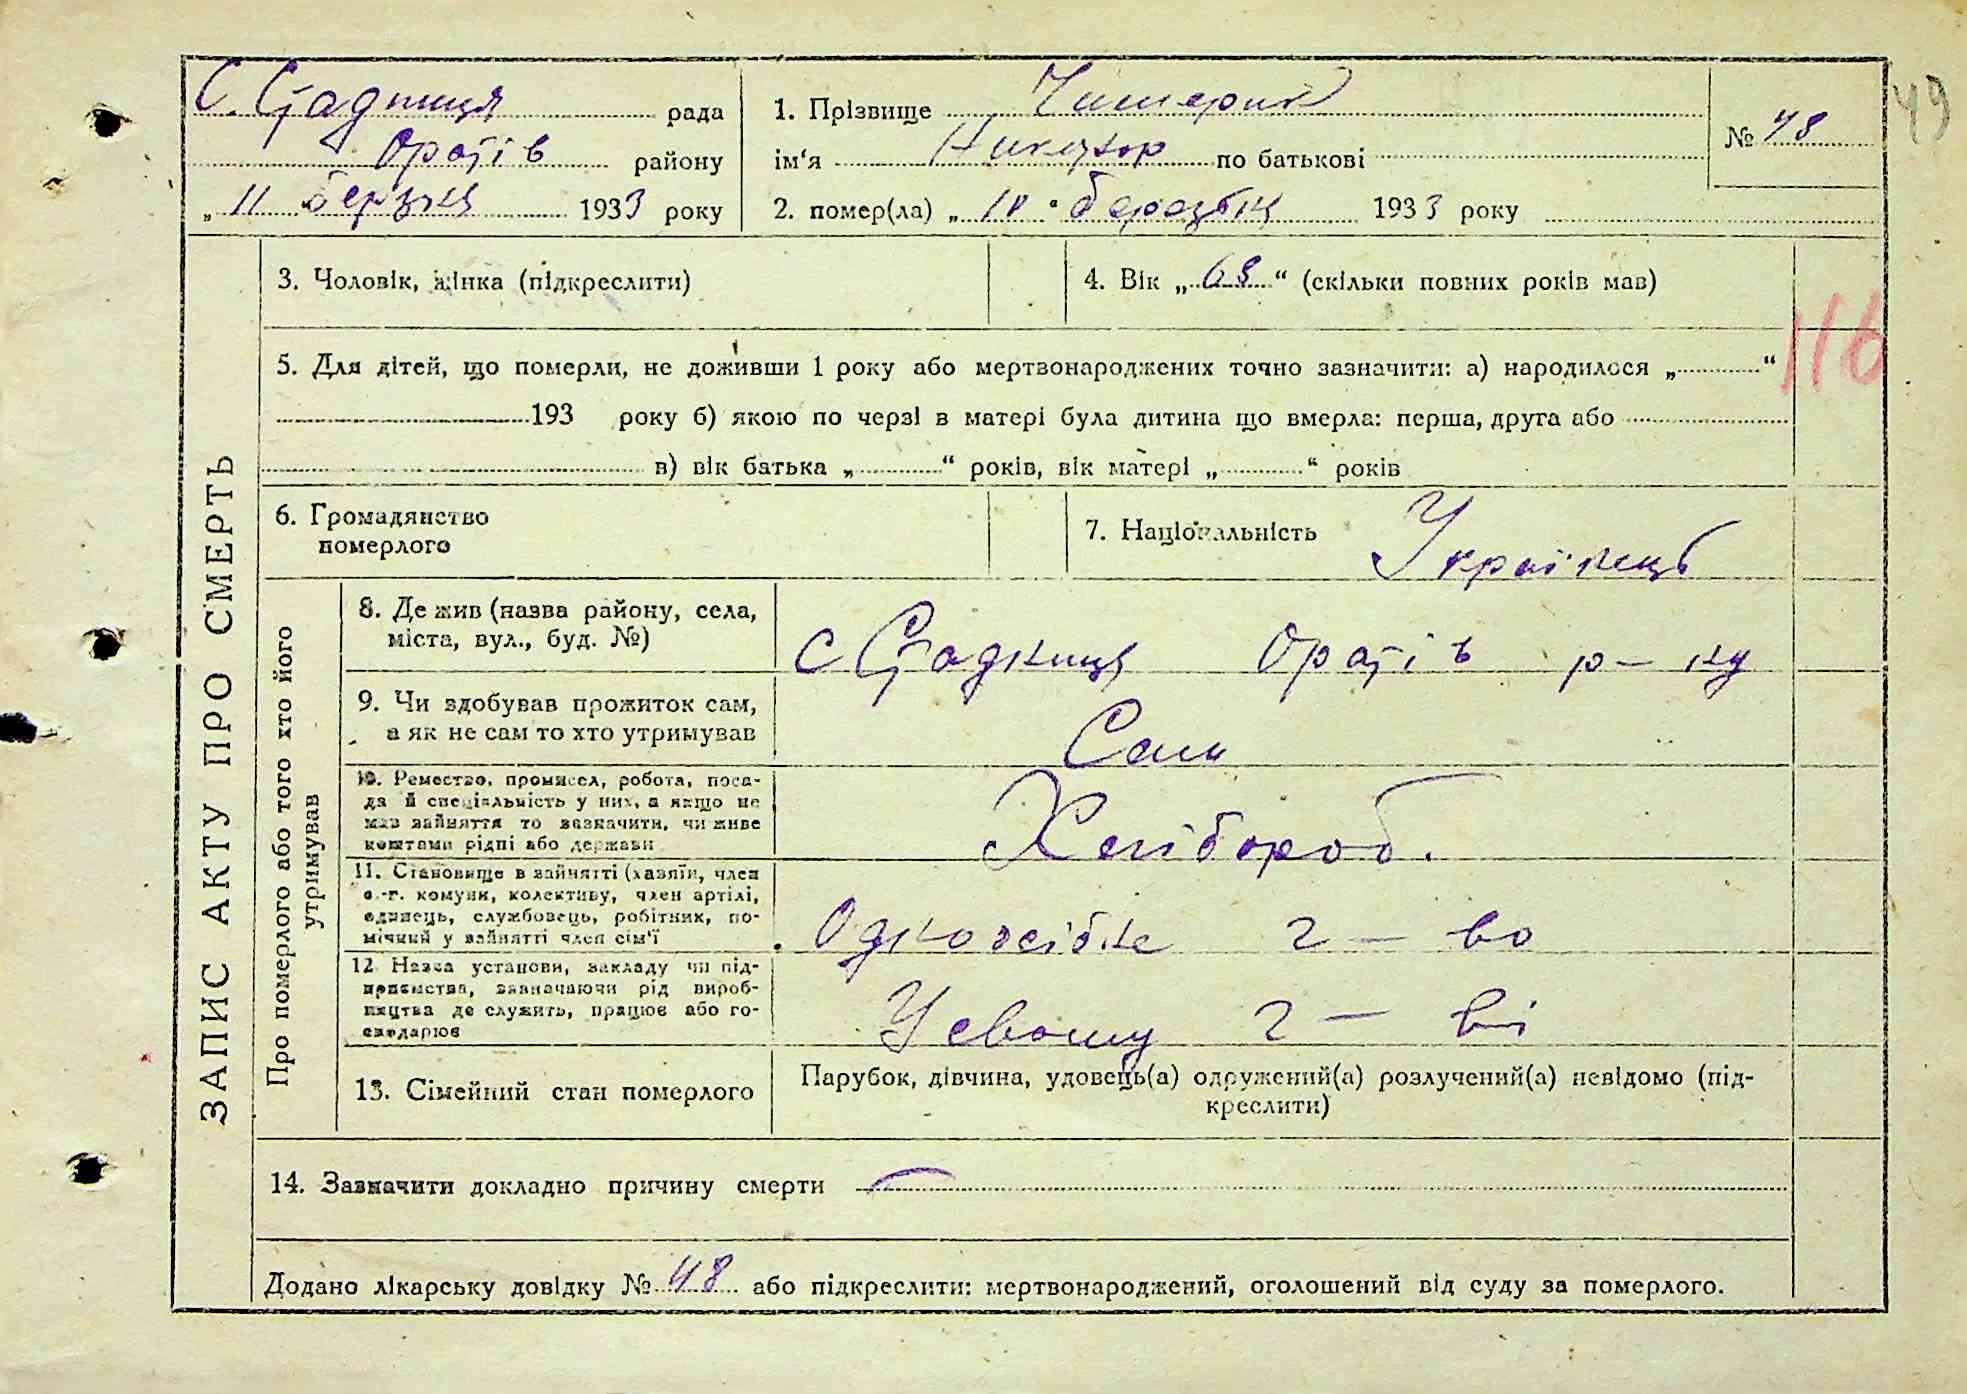 49
С. Стадниця рада
Оратів району
„ 11 березня 1933 року
1. Прізвище
ім'я Никифор по батькові
2. помер(ла) „ 10 " березня 1933 року
№ 48
3. Чоловік, жінка (підкреслити)
4. Вік „ 68 “ (скільки повних років мав)
116
5. Для дітей, що померли, не доживши 1 року або мертвонароджених точно зазначити: а) народилося „ “
193 року б) якою по черзі в матері була дитина що вмерла: перша, друга або
в) вік батька „ “ років, вік матері „ “ років
6. Громадянство
померлого
7. Національність Українець
ЗАПИС АКТУ ПРО СМЕРТЬ
Про померлого або того хто його
утримував
8. Де жив (назва району, села,
міста, вул., буд. №)
с Стадниця Оратів р-ну
9. Чи здобував прожиток сам,
а як не сам то хто утримував
Сам
10. Ремество, промисел, робота, поса-
да й спеціяльність у них, а якщо не
мав зайняття то зазначити, чи живе
коштами рідні або держави
Хлібороб.
11. Становище в зайнятті (хазяїн, член
с.-г. комуни, колективу, член артілі,
одинець, службовець, робітник, по-
мічний у зайнятті член сім'ї
Одноосібне г-во
12 Назва установи, закладу чи під-
приємства, зазначаючи рід вироб-
ництва де служить, працює або го-
сподарює
У своєму г-ві
13. Сімейний стан померлого
Парубок, дівчина, удовець(а) одружений(а) розлучений(а) невідомо (під-
креслити)
14. Зазначити докладно причину смерти —
Додано лікарську довідку № 48 або підкреслити: мертвонароджений, оголошений від суду за померлого.